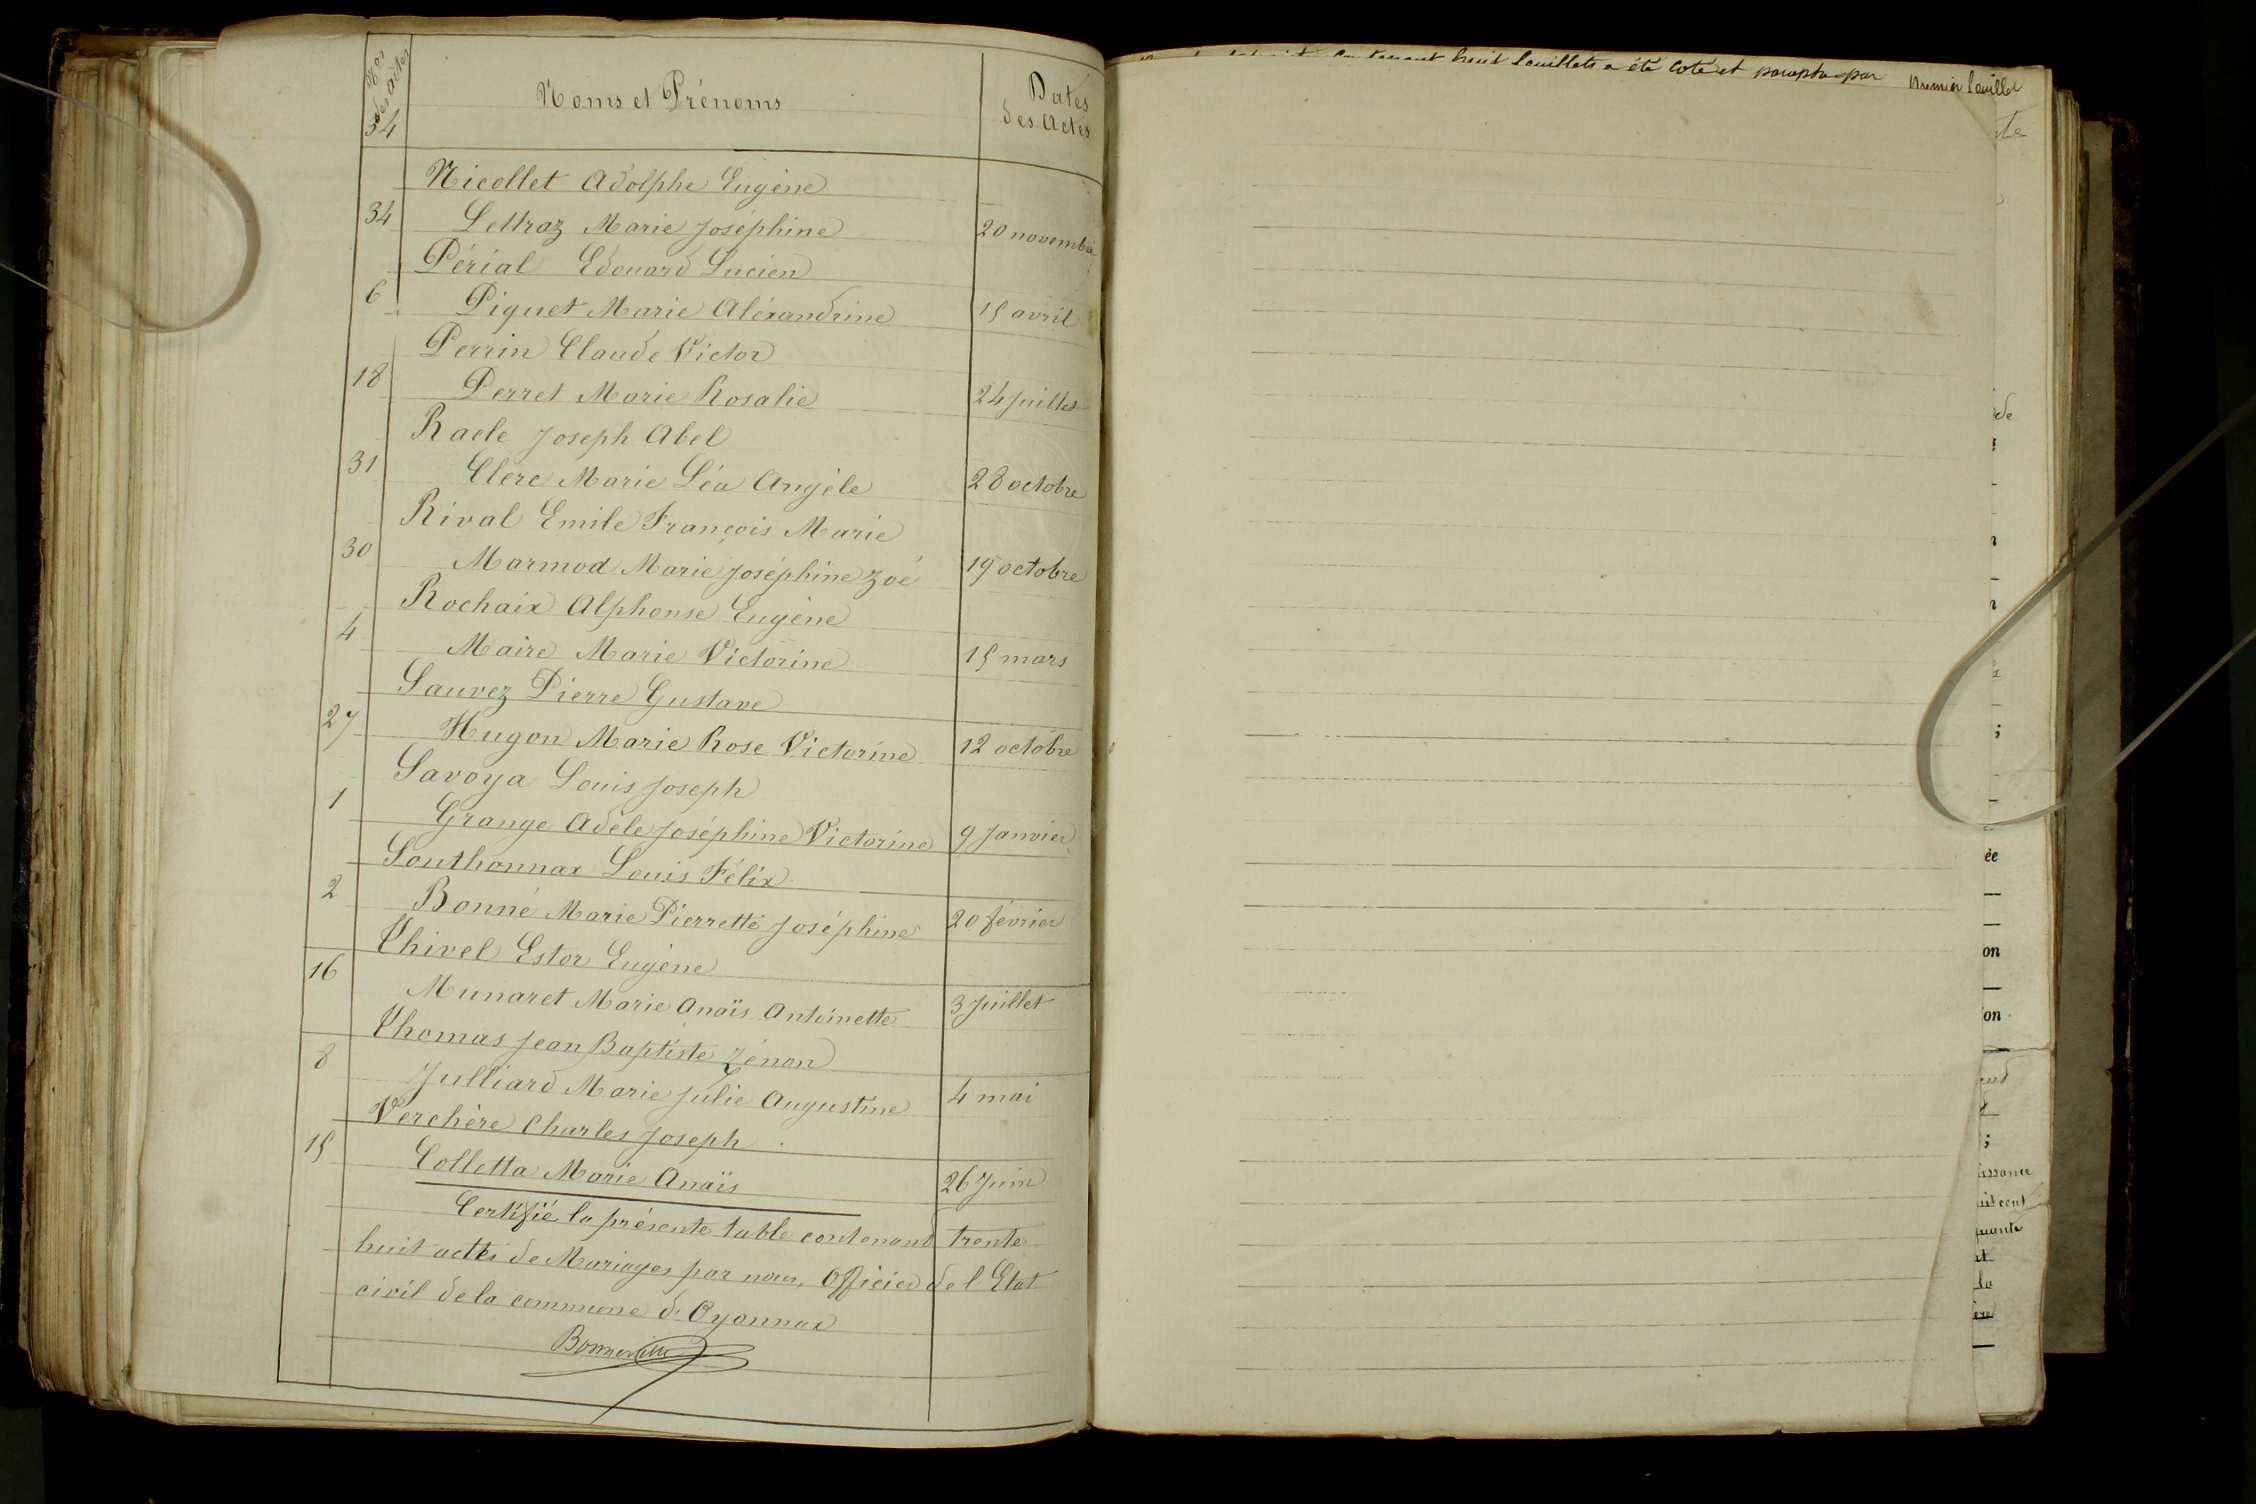 Nos des actes
Noms et Prénoms
Dates des Actes
34
Nicollet Adolphe Eugène
34 Lettraz Marie Joséphine 20 novembre
Périal Edouard Lucien
6 Piquet Marie Aléxandrine 15 avril
Perrin Claude Victor
18 Perret Marie Rosalie 24 juillet
Racle Joseph Abel
31 Clerc Marie Léa Angèle 28 octobre
Rival Emile François Marie
30 Marmod Marie Joséphine Zoé 19 octobre
Rochaix Alphonse Eugène
4 Maire Marie Victorine 15 mars
Sauvez Pierre Gustave
27 Hugon Marie Rose Victorine 12 octobre
Savoya Louis Joseph
1 Grange Adèle Joséphine Victorine 9 Janvier
Southonnax Louis Félix
2 Bonne Marie Pierrette Joséphine 20 février
Thivel Estor Eugène
16 Munaret Marie Anaïs Antoinette 3 Juillet
Thomas Jean Baptiste Zénon
8 Julliard Marie Julie Augustine 4 mai
Verchère Charles Joseph
15 Colletta Marie Anaïs 26 Juin
Certifié la présente table contenant trente
huit actes de Mariages par nous, Officier de l'Etat
civil de la commune d'Oyonnax
contenant huit feuillets a été coté et paraphé par
premier feuillet
de
ée
on
ion
issance
uit cent
quante
la